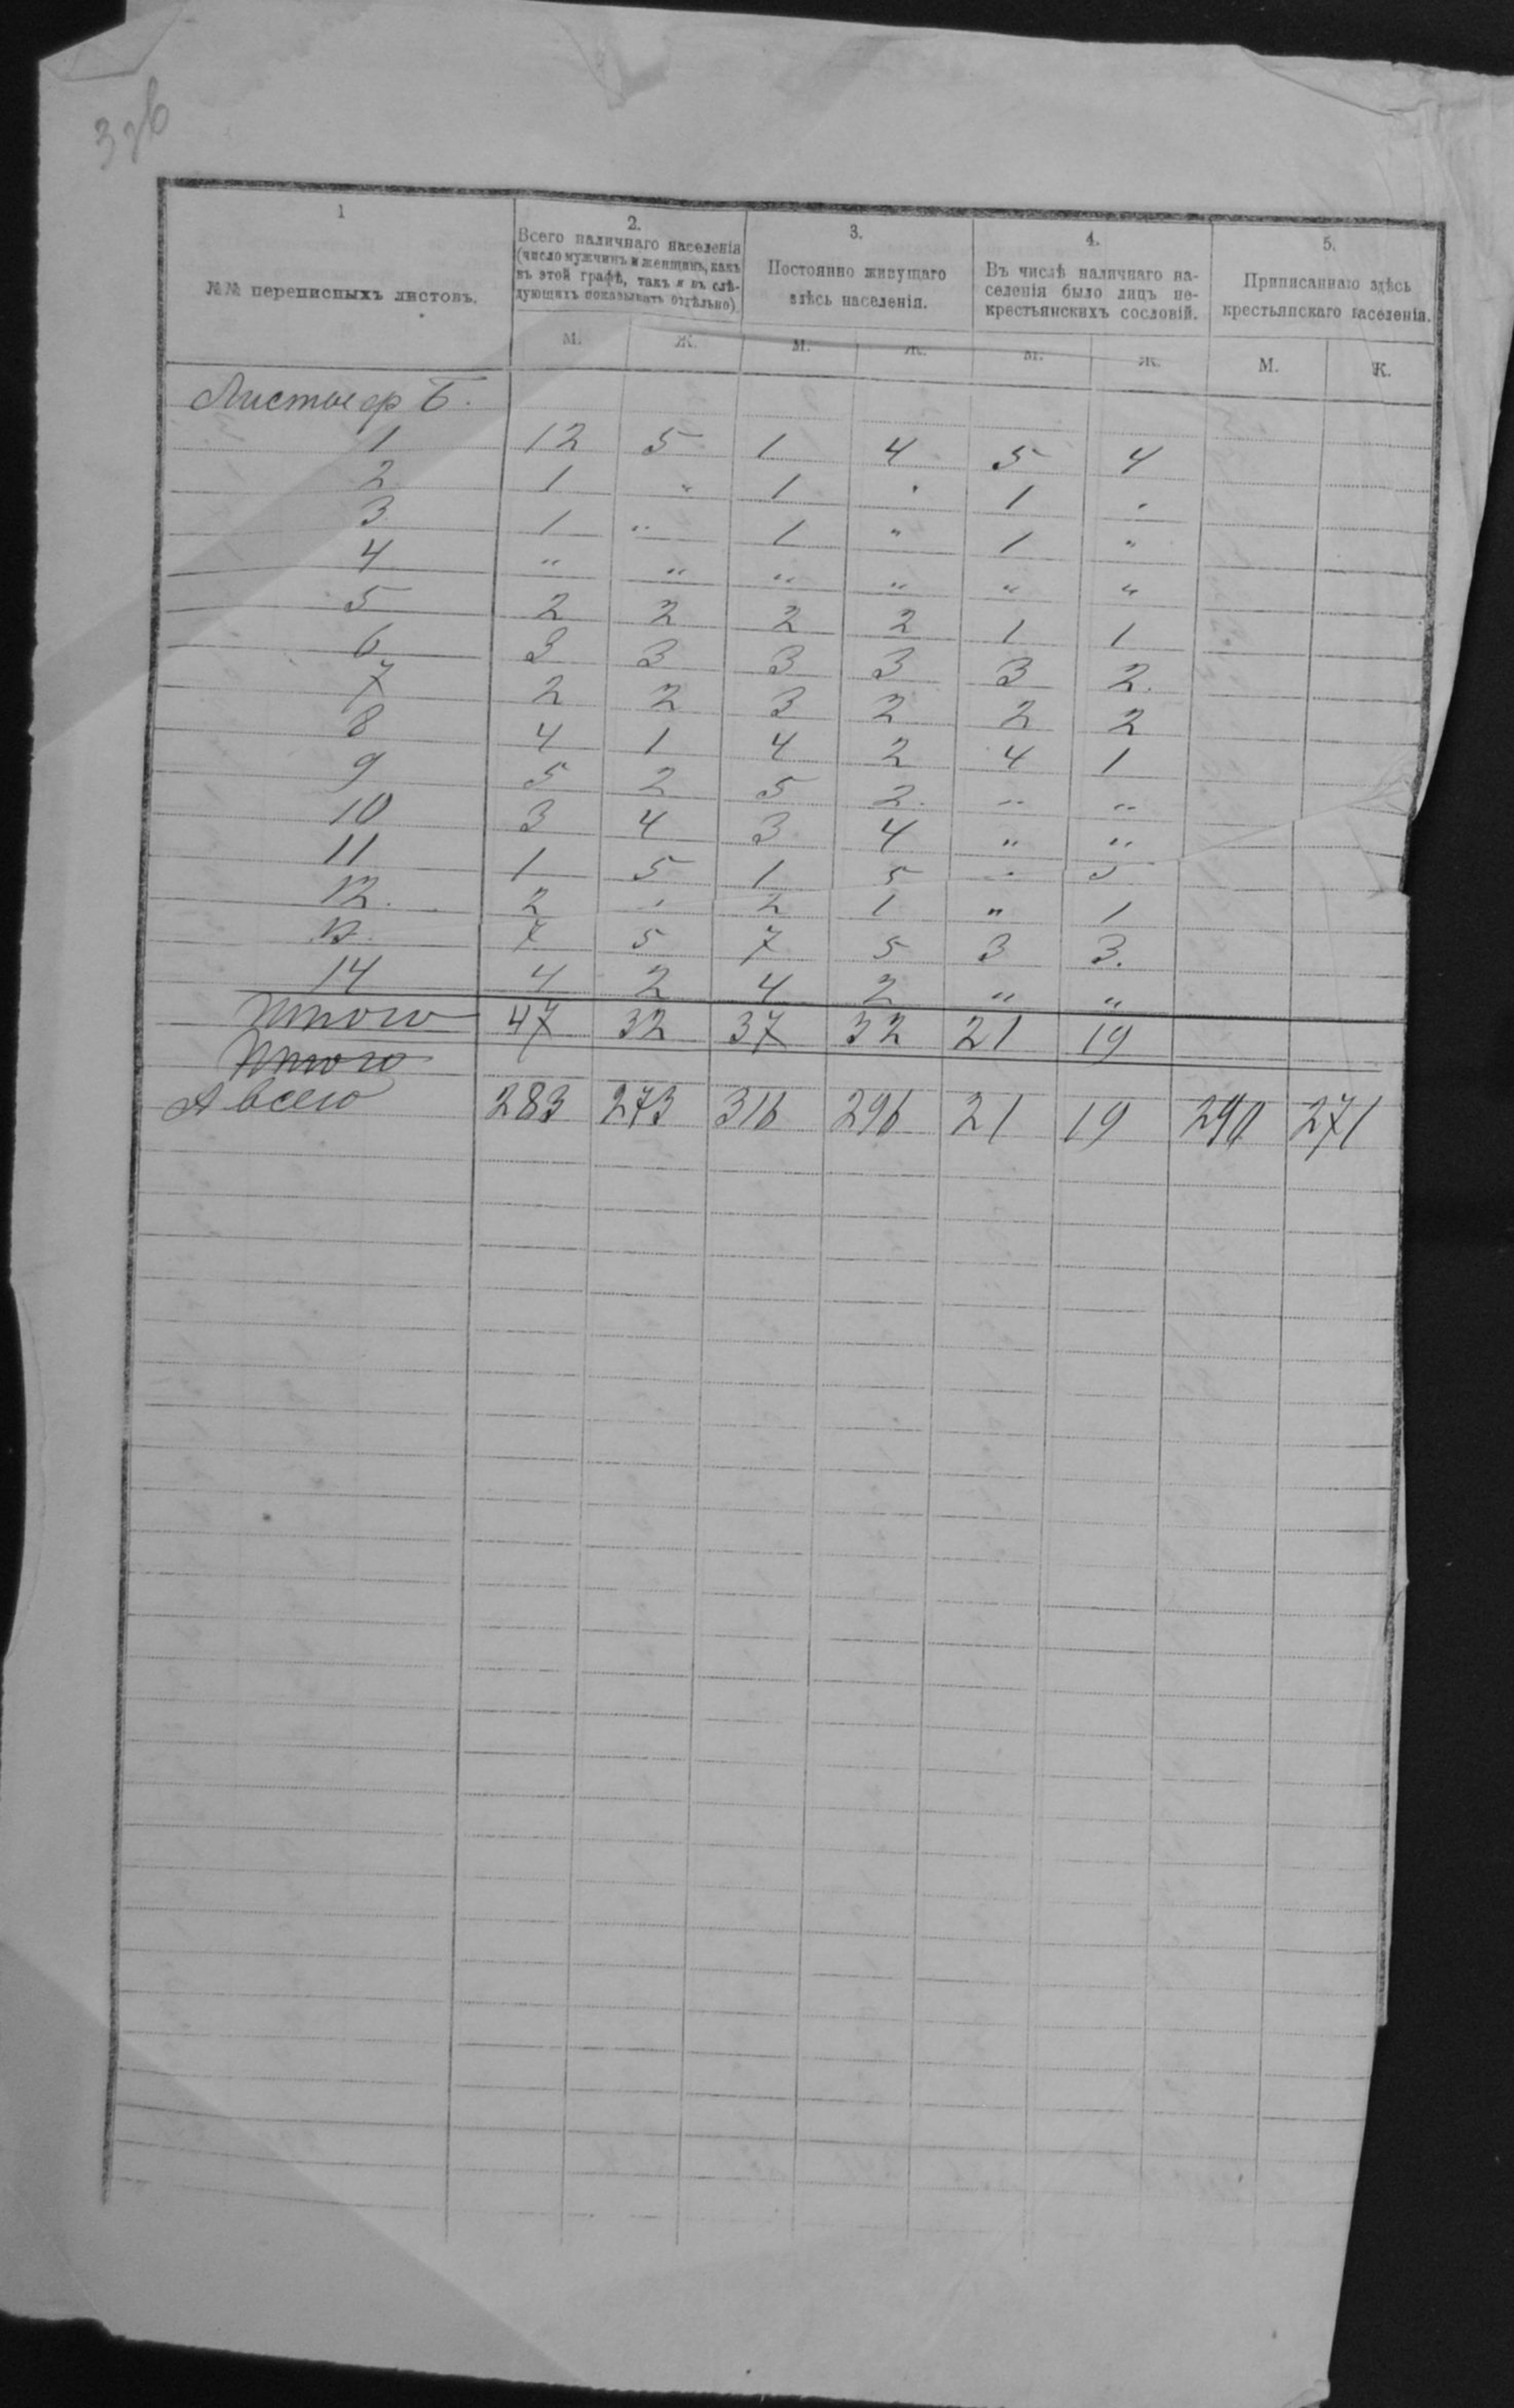 326
1 2. 3. 4. 5.
№№ переписныхъ листовъ.
Всего наличнаго населенія
(число мужчинъ и женщинъ, какъ
въ этой графѣ, такъ и въ слѣ-
дующихъ показывать отдѣльно).
Постоянно живущаго
здѣсь населенія.
Въ числѣ наличнаго на-
селенія было лицъ не-
крестьянскихъ сословій.
Приписаннаго здѣсь
крестьянскаго населенія.
М. Ж. М. Ж. М. Ж. М. Ж.
Листы ф Б.
1 12 5 1 4 5 4
2 1 " 1 " 1 "
3 1 " 1 " 1 "
4 " " " " " "
5 2 2 2 2 1 1
6 3 3 3 3 3 2.
7 2 2 3 2 2 2
8 4 1 4 2 4 1
9 5 2 5 2. " "
10 3 4 3 4 " "
11 1 5 1 5 " 5
12. 2 " 2 1 " 1
13. 7 5 7 5 3 3.
14 4 2 4 2 " "
Итого 47 32 37 32 21 19
Итого
А всего 283 273 316 296 21 19 290 271